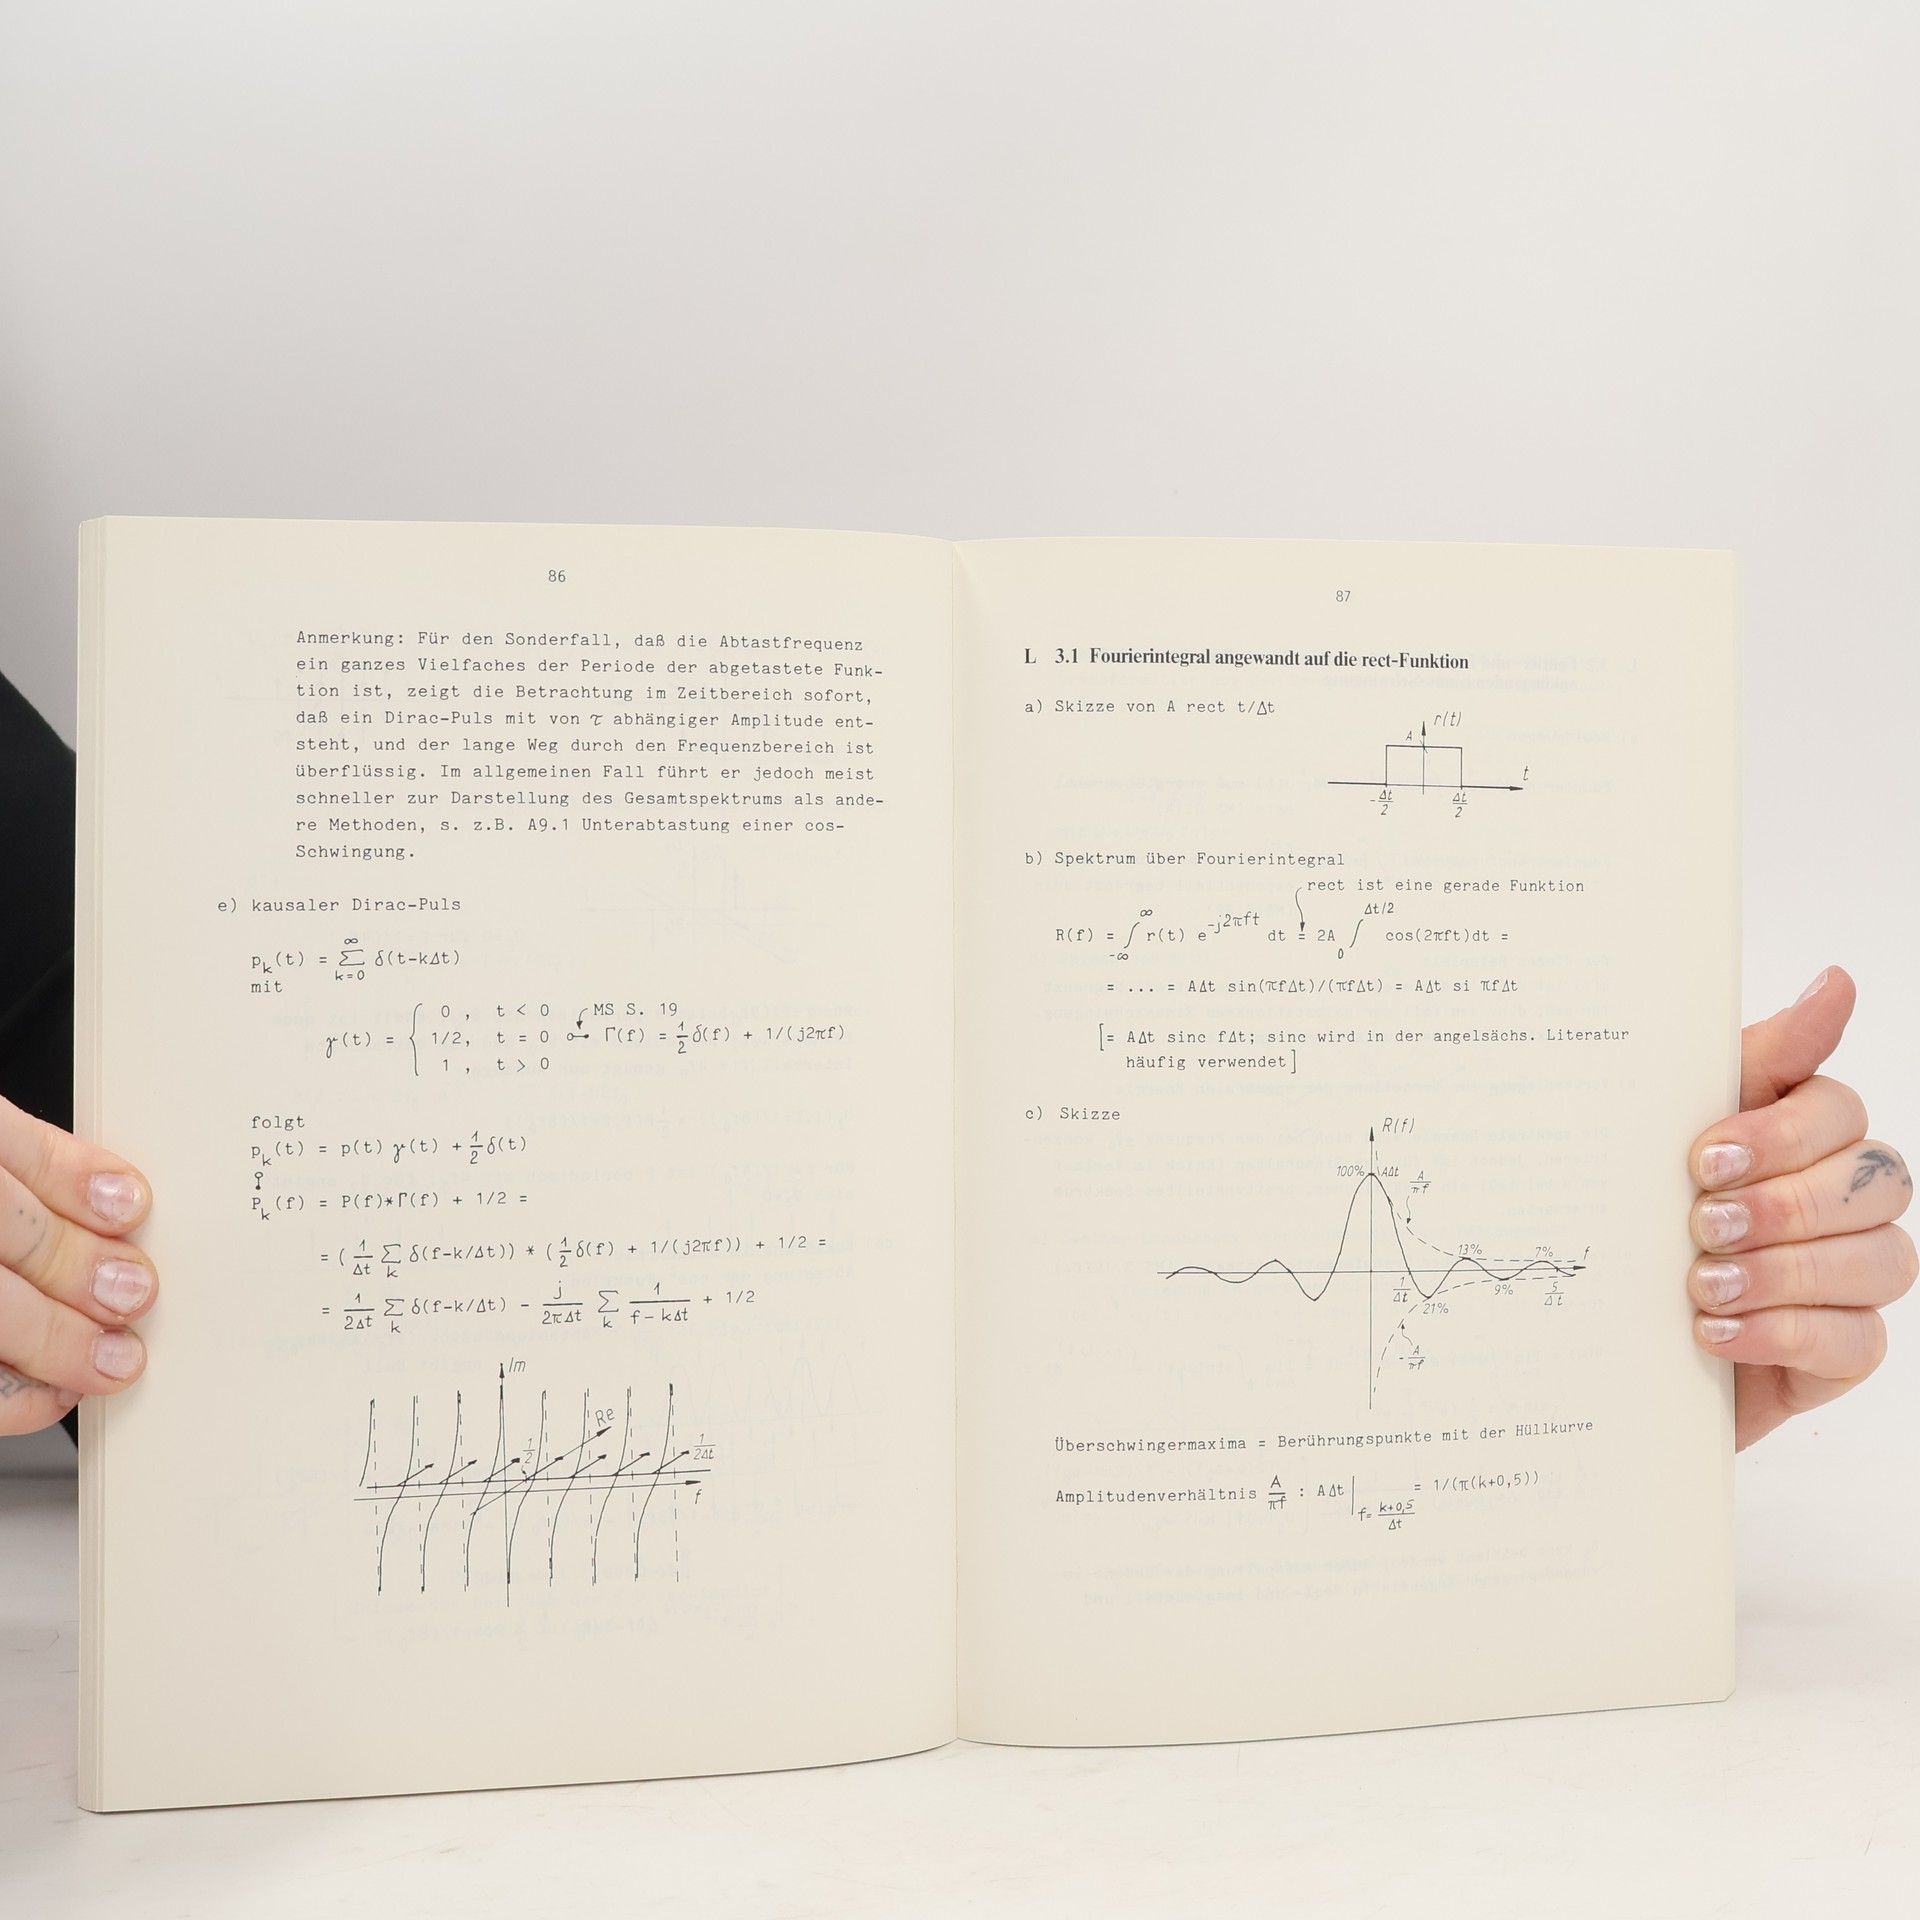 86
Anmerkung: Für den Sonderfall, daß die Abtastfrequenz
ein ganzes Vielfaches der Periode der abgetastete Funk-
tion ist, zeigt die Betrachtung im Zeitbereich sofort,
daß ein Dirac-Puls mit von τ abhängiger Amplitude ent-
steht, und der lange Weg durch den Frequenzbereich ist
überflüssig. Im allgemeinen Fall führt er jedoch meist
schneller zur Darstellung des Gesamtspektrums als ande-
re Methoden, s. z.B. A9.1 Unterabtastung einer cos-
Schwingung.
e) kausaler Dirac-Puls
p_k(t) = ∑_{k=0}^{∞} δ(t-kΔt)
mit
γ(t) = { 0 , t < 0
1/2, t = 0 o-• Γ(f) = 1/2 δ(f) + 1/(j2πf)
1 , t > 0
MS S. 19
folgt
p_k(t) = p(t) γ(t) + 1/2 δ(t)
P_k(f) = P(f)*Γ(f) + 1/2 =
= ( 1/Δt ∑_k δ(f-k/Δt)) * ( 1/2 δ(f) + 1/(j2πf)) + 1/2 =
= 1/2Δt ∑_k δ(f-k/Δt) - j/2πΔt ∑_k 1/f-kΔt + 1/2
Im
Re
1/2
1/2Δt
f
87
L 3.1 Fourierintegral angewandt auf die rect-Funktion
a) Skizze von A rect t/Δt
r(t)
A
t
-Δt/2
Δt/2
b) Spektrum über Fourierintegral
rect ist eine gerade Funktion
R(f) = ∫_{-∞}^{∞} r(t) e^{-j2πft} dt = 2A ∫_0^{Δt/2} cos(2πft)dt =
= ... = AΔt sin(πfΔt)/(πfΔt) = AΔt si πfΔt
[= AΔt sinc fΔt; sinc wird in der angelsächs. Literatur
häufig verwendet]
c) Skizze
R(f)
100%
AΔt
A/πf
13%
7%
f
1/Δt
21%
9%
5/Δt
-A/πf
Überschwingermaxima = Berührungspunkte mit der Hüllkurve
Amplitudenverhältnis A/πf : AΔt |_{f= k+0,5/Δt} = 1/(π(k+0,5))